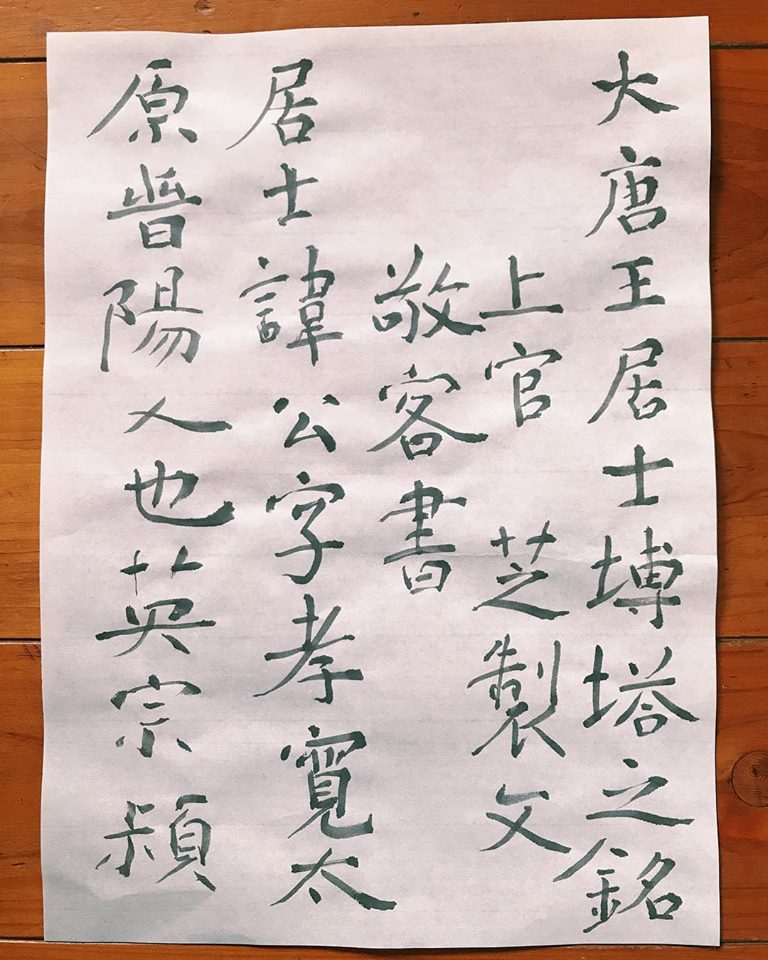 大唐王居士塼塔之銘
上官 芝製文
敬客書
居士諱公字孝寬太
原晉陽人也英宗穎